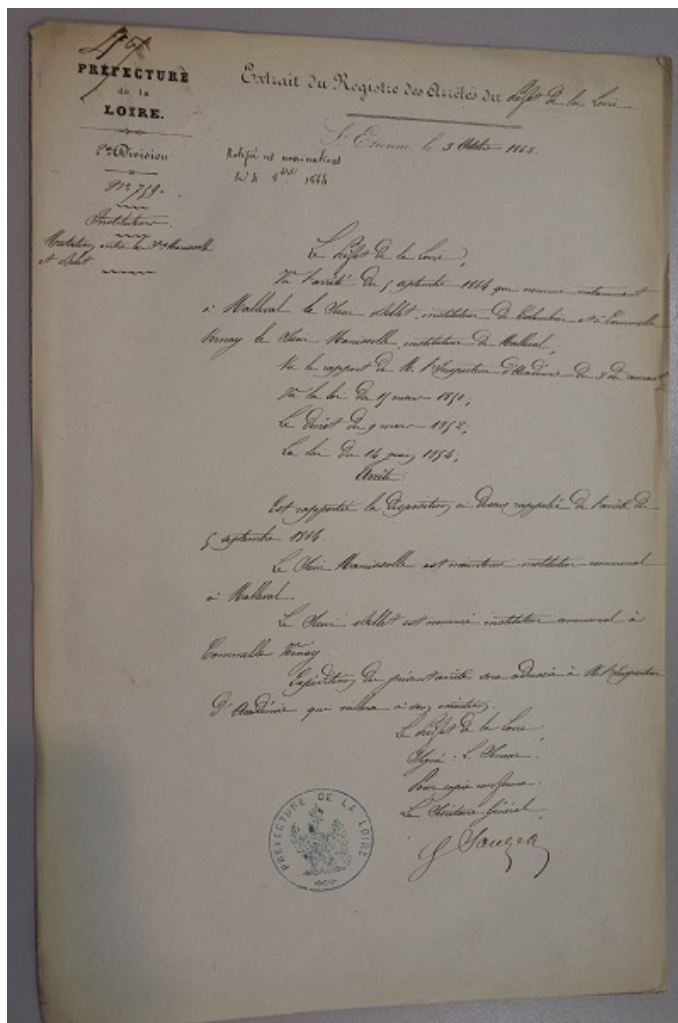 PRÉFECTURE
de la
LOIRE.
2me Division
No 759.
Instituteurs.
Mutations entre les Srs Manissolle
et Sellet
Extrait du Registre des Arrêtés du Préfet de la Loire
St Etienne, le 3 Octobre 1864.
Notifié et
le 4 8bre 1864
Le Préfet de la Loire,
Vu l'arrêté du 5 septembre 1864 qui nomme notamment
à Malleval le Sieur Sellet, instituteur de Colombier et à Commelle
Vernay le Sieur Manissolle, instituteur de Malleval,
Vu le rapport de M. l'Inspecteur d'Académie du 3 du courant,
Vu la loi du 15 mars 1850;
Le décret du 9 mars 1852;
La loi du 14 juin 1854;
Arrête:
Est rapportée la disposition ci dessus rappelée de l'arrêté du
5 septembre 1864.
Le Sieur Manissolle est maintenu instituteur communal
à Malleval.
Le Sieur Sellet est nommé instituteur communal à
Commelle Vernay
Expédition du présent arrêté sera adressée à M. l'Inspecteur
d'Académie qui veillera à son exécution.
Le Préfet de la Loire,
Signé: L. Sencier.
Pour copie conforme:
Le Secrétaire Général,
PRÉFECTURE DE LA LOIRE